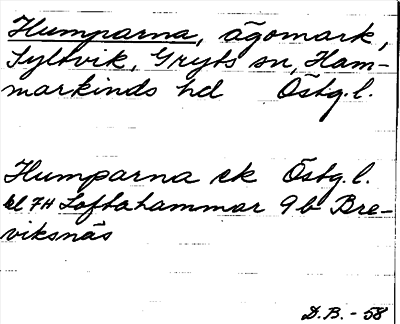 Humparna, ägomark,
Syltvik, Gryts sn, Ham-
markinds hd Östg. l.
Humparna ek Östg. l.
bl 7H Loftahammar 9b Bre-
viksnäs
D.B. - 58